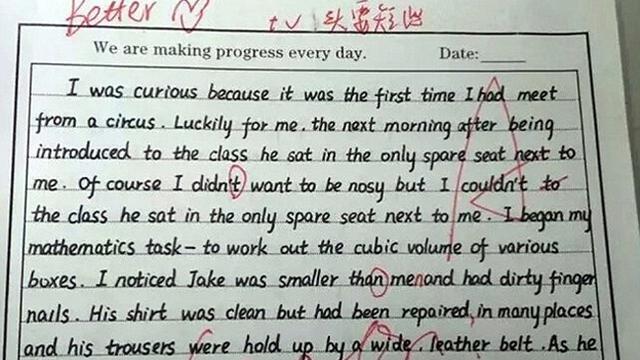 Better
tv 头要短出
We are making progress every day. Date:
I was curious because it was the first time I had meet
from a circus. Luckily for me, the next morning after being
introduced to the class he sat in the only spare seat next to
me. Of course I didn't want to be nosy but I couldn't to
the class he sat in the only spare seat next to me. I began my
mathematics task - to work out the cubic volume of various
boxes. I noticed Jake was smaller than me and had dirty finger
nails. His shirt was clean but had been repaired in many places
and his trousers were hold up by a wide, leather belt. As he